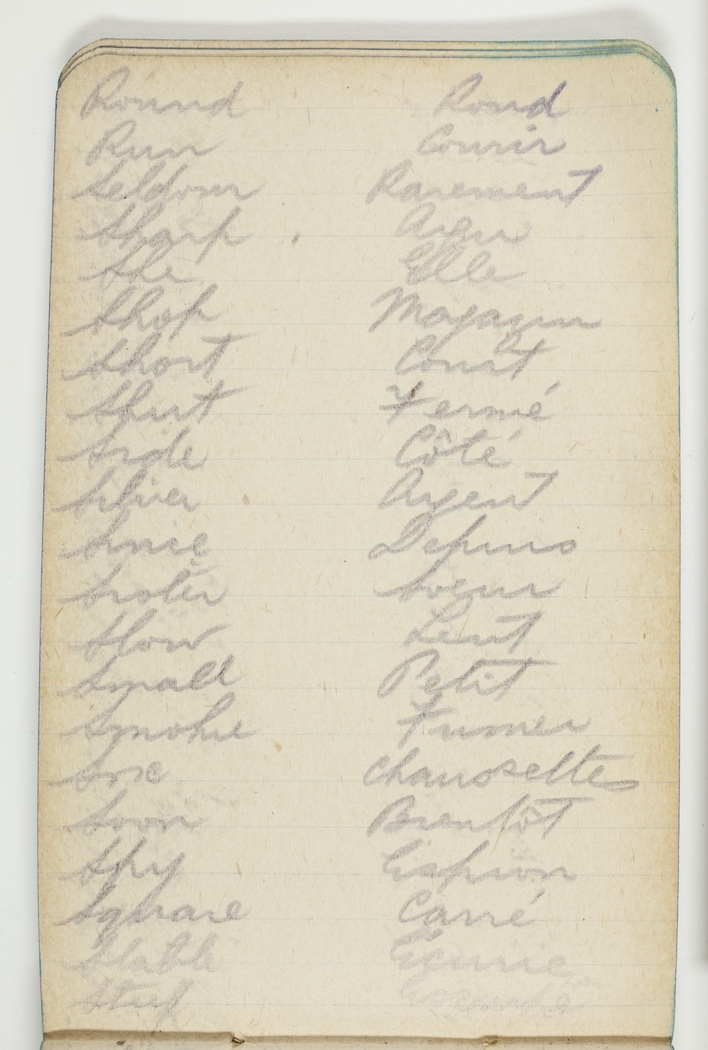 Round Rond
Run Courir
Seldom Rarement
Sharp Aigu
She Elle
Shop Magasin
Short Court
Shut Fermé
Side Côté
Silver Argent
Since Depuis
Sister Soeur
Slow Lent
Small Petit
Smoke Fumer
Chaussettes
Soon Bientôt
Spy Espion
Square Carré
Stable Écurie